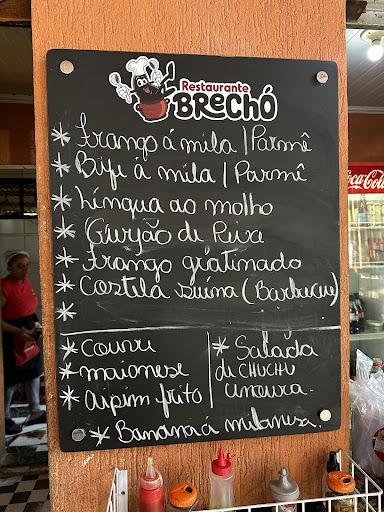 Restaurante
BRECHÓ
* Frango á mila | Parmê
* Bife á mila | Parmê
* Língua ao molho
* Gurjão de Peixe
* Frango gratinado
* Costela suína (Barbecue)
*
* Couve
* maionese
* Aipim frito
* Salada
de CHUCHU
cenoura.
* Banana á milanesa.
Coca-Cola